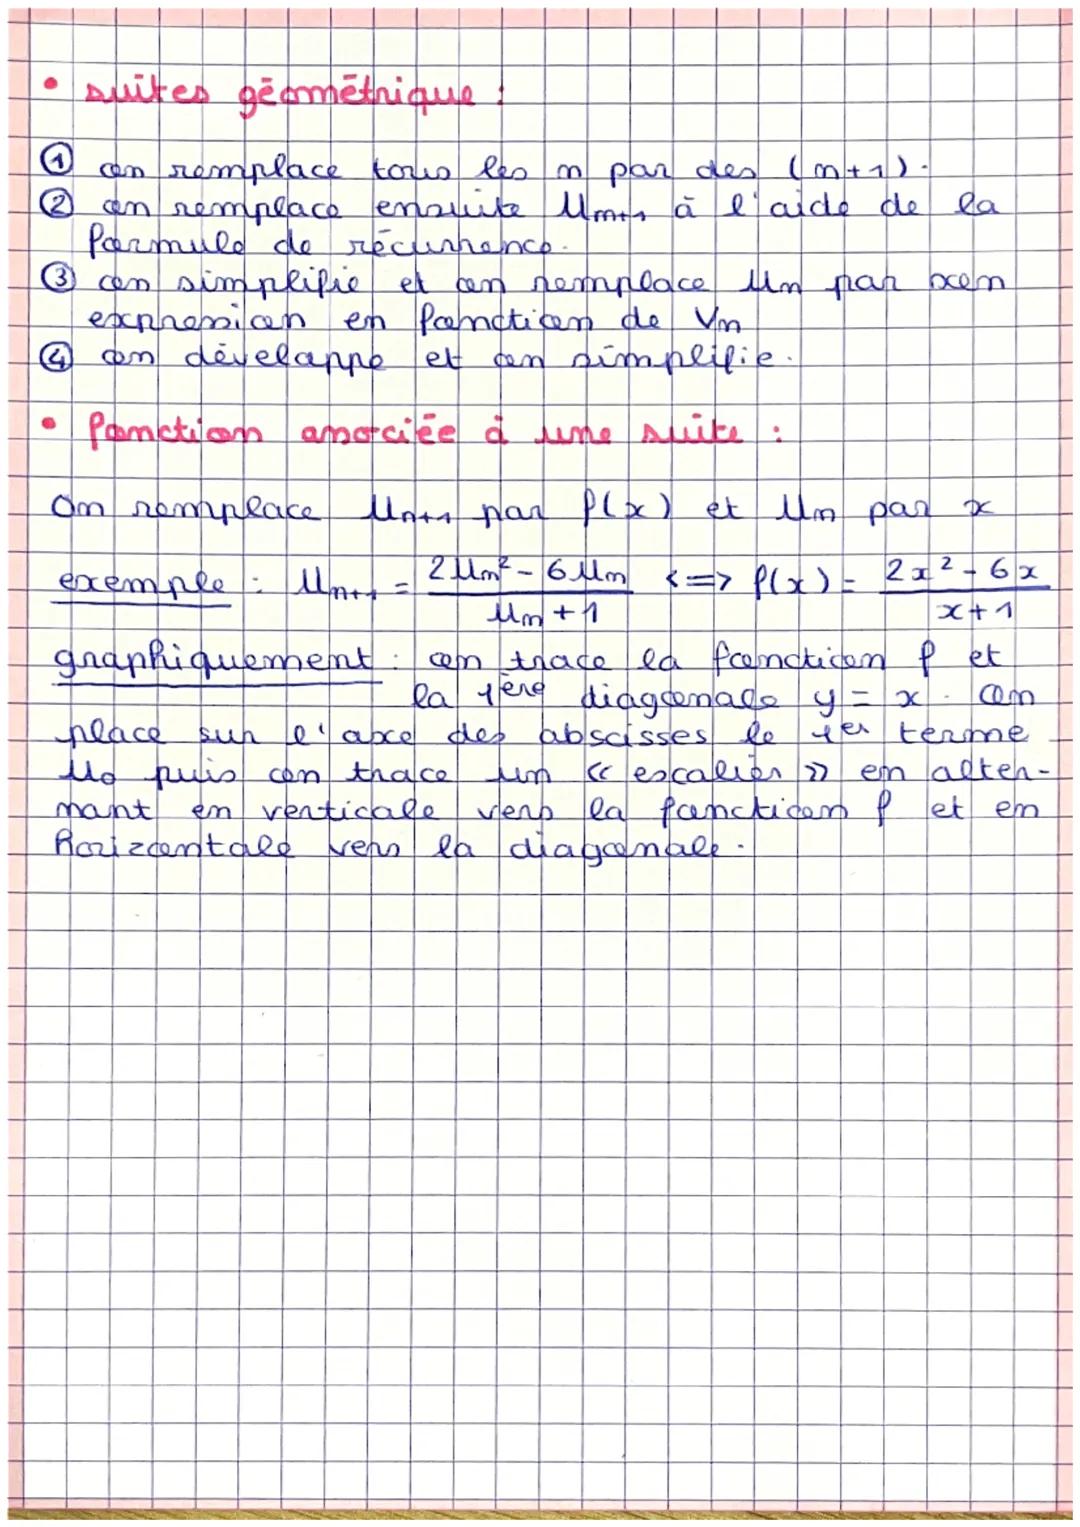 • suites géométrique :
① on remplace tous les n par des (n+1).
② on remplace ensuite Un+1 à l'aide de la
formule de récurrence.
③ on simplifie et on remplace Un par son
expression en fonction de Vn
④ on développe et on simplifie.
• fonction associée à une suite :
On remplace Un+1 par f(x) et Un par x
exemple : Un+1 = (2Un² - 6Un)/(Un + 1) <=> f(x) = (2x² - 6x)/(x + 1)
graphiquement : on trace la fonction f et
la 1ère diagonale y = x. On
place sur l'axe des abscisses le 1er terme
U0 puis on trace un « escalier » en alter-
nant en verticale vers la fonction f et en
horizontale vers la diagonale.